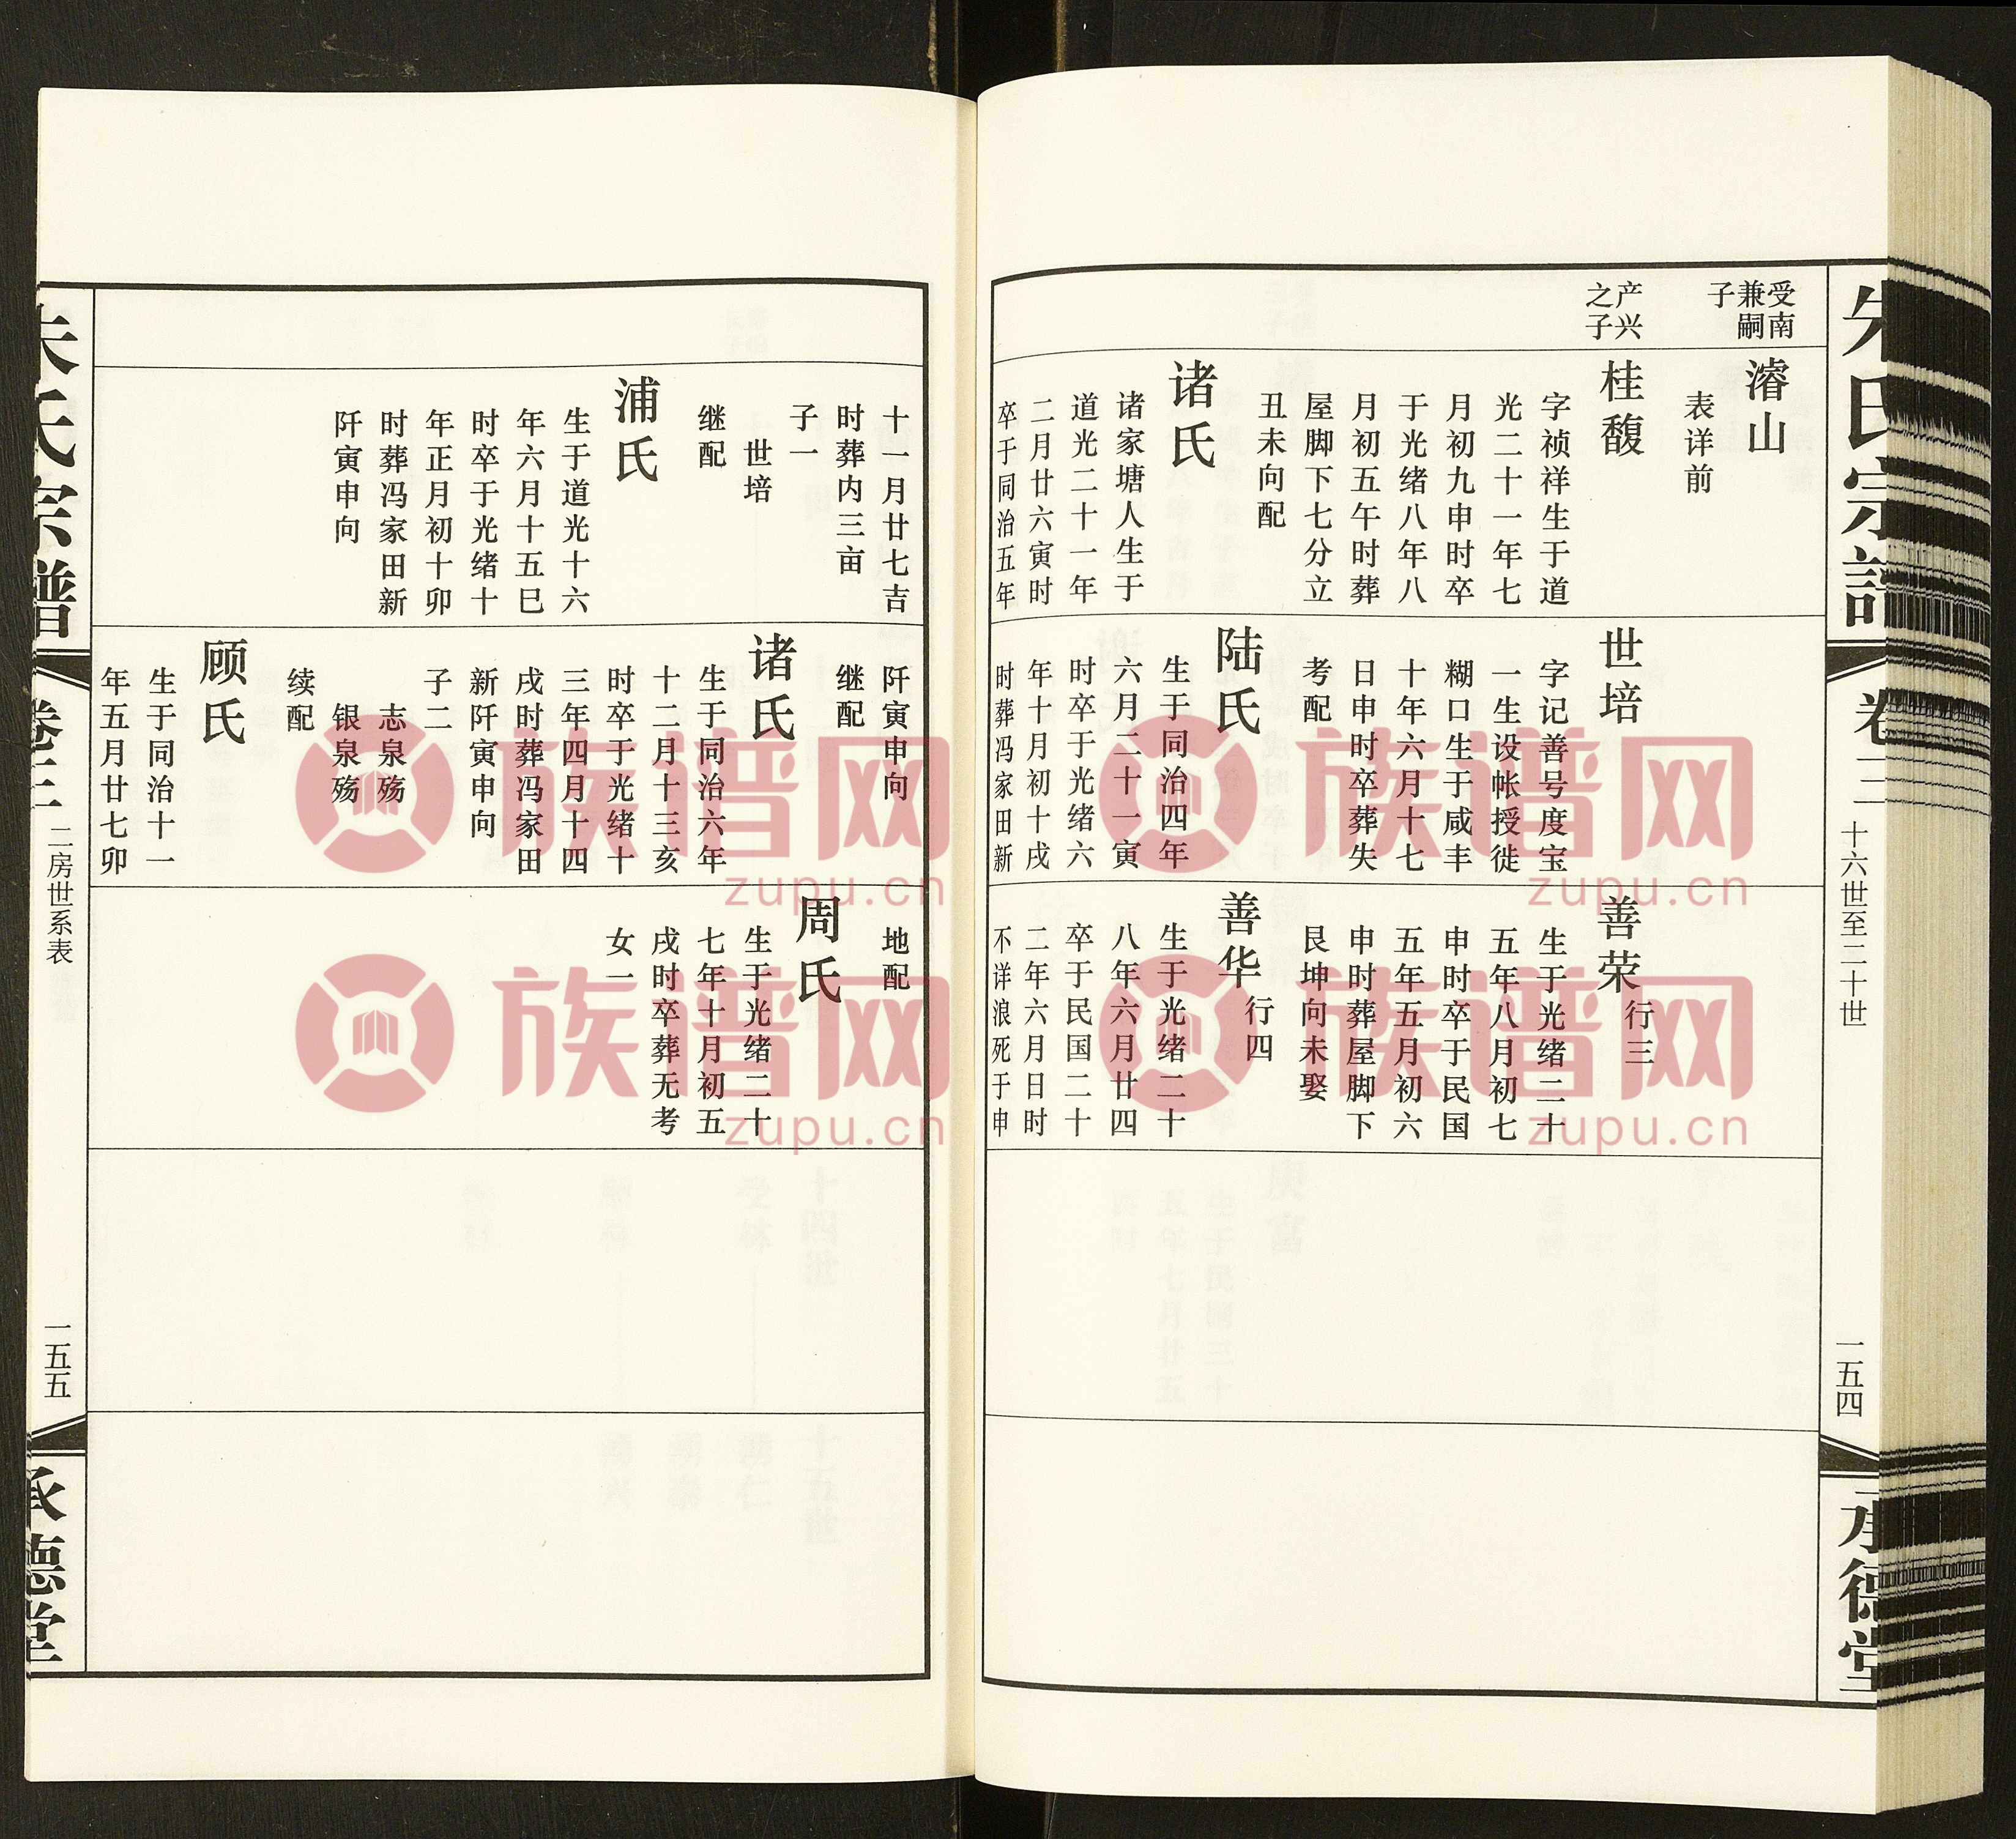 朱氏宗譜
卷三
十六世至二十世
一五四
承德堂
受南
兼嗣
子
产兴
之子
濬山
表详前
桂馥
字祯祥生于道
光二十一年七
月初九申时卒
于光绪八年八
月初五午时葬
屋脚下七分立
丑未向配
诸氏
诸家塘人生于
道光二十一年
二月廿六寅时
卒于同治五年
世培
字记善号度宝
一生设帐授徙
糊口生于咸丰
十年六月十七
日申时卒葬失
考配
陆氏
生于同治四年
六月二十一寅
时卒于光绪六
年十月初十戌
时葬冯家田新
善荣
行三
生于光绪二十
五年八月初七
申时卒于民国
五年五月初六
申时葬屋脚下
艮坤向未娶
善华
行四
生于光绪二十
八年六月廿四
卒于民国二十
二年六月日时
不详浪死于申
十一月廿七吉
时葬内三亩
子一
世培
继配
浦氏
生于道光十六
年六月十五巳
时卒于光绪十
年正月初十卯
时葬冯家田新
阡寅申向
阡寅申向
继配
诸氏
生于同治六年
十二月十三亥
时卒于光绪十
三年四月十四
戌时葬冯家田
新阡寅申向
子二
志泉殇
银泉殇
续配
顾氏
生于同治十一
年五月廿七卯
地配
周氏
生于光绪二十
七年十月初五
戌时卒葬无考
女一
朱氏宗譜
卷三
二房世系表
一五五
承德堂
族谱网
zupu.cn
族谱网
zupu.cn
族谱网
zupu.cn
族谱网
zupu.cn